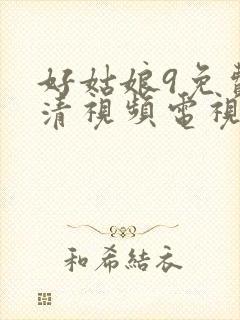 好姑娘9免費
清視頻電視
和希結衣